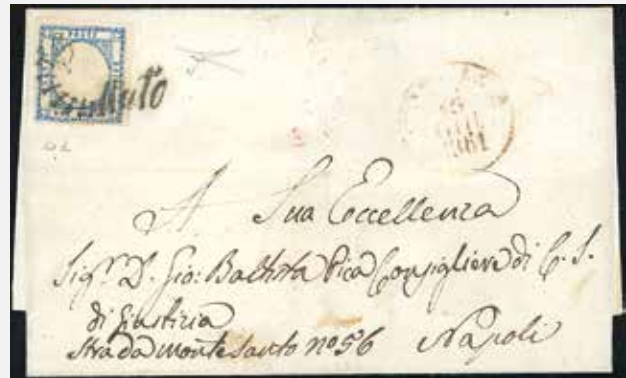 POSTE
Annullato
1861
A Sua Eccellenza
Sig.r D. Gio: Battista Pica Consigliere di C. S.
di Giustizia
strada Monte Santo no 56 Napoli